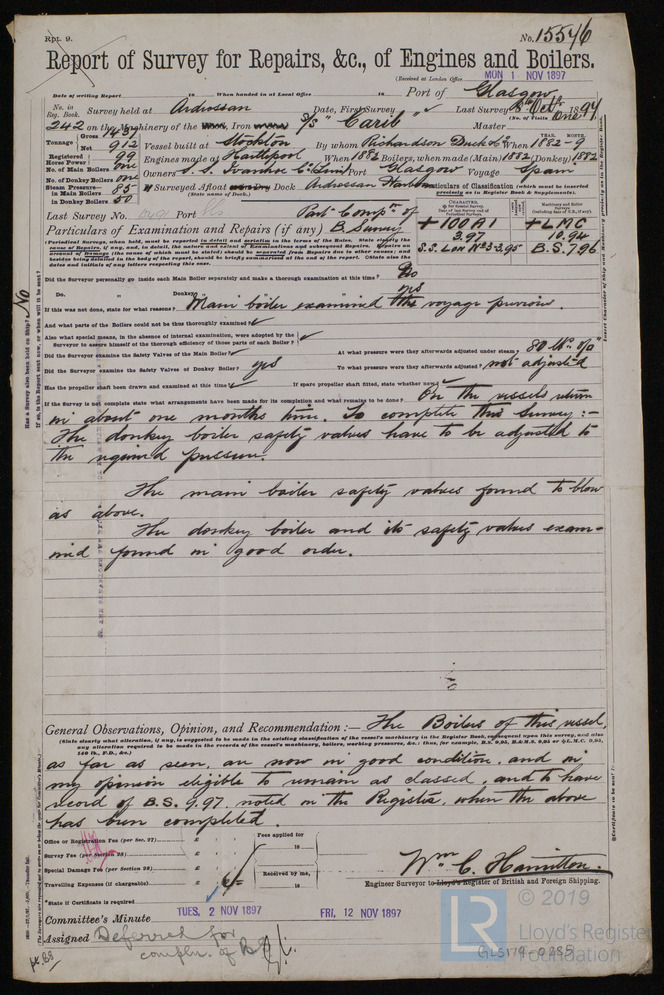 Rpt. 9.
No. 15546
Report of Survey for Repairs, &c., of Engines and Boilers.
(Received at London Office
MON 1 NOV 1897
Date of writing Report
When handed in at Local Office
Port of Glasgow
No. in Reg. Book.
Survey held at Ardrossan
Date, First Survey
Last Survey 8th Octr 1897
(No. of Visits One)
242 on the Machinery of the Iron S/S "Carib"
Master
Tonnage
Gross 1437
Net 912
Vessel built at Stockton
By whom Richardson Duck & Co
When 1882-9
YEAR. MONTH.
Registered Horse Power 99
Engines made at Hartlepool
When 1882
Boilers, when made (Main) 1882 (Donkey) 1882
No. of Main Boilers One
No. of Donkey Boilers One
Owners S.S. Ivanhoe Co Lim
Port Glasgow
Voyage Spain
Steam Pressure in Main Boilers 85
in Donkey Boilers 50
If Surveyed Afloat Dock Ardrossan Harbour
(State name of Dock.)
Particulars of Classification (which must be inserted precisely as in Register Book & Supplements).
Last Survey No.
Port
Part Compn of
Particulars of Examination and Repairs (if any) B. Survey
+100A1
3.97
S.S. Lon No 3-3.95
+LMC
10.94
B.S. 7.96
Did the Surveyor personally go inside each Main Boiler separately and make a thorough examination at this time? No
Do. Donkey yes
If this was not done, state for what reasons? Main boiler examined the voyage previous.
And what parts of the Boilers could not be thus thoroughly examined?
Also what special means, in the absence of internal examination, were adopted by the Surveyor to assure himself of the thorough efficiency of those parts of each Boiler?
Did the Surveyor examine the Safety Valves of the Main Boiler?
At what pressure were they afterwards adjusted under steam? 80 lbs □"
Did the Surveyor examine the Safety Valves of Donkey Boiler? yes
To what pressure were they afterwards adjusted? not adjusted
Has the propeller shaft been drawn and examined at this time?
If spare propeller shaft fitted, state whether new?
If the Survey is not complete state what arrangements have been made for its completion and what remains to be done? On the vessels return
in about one months time. To complete this Survey:-
The donkey boiler safety valves have to be adjusted to
the required pressure.
The main boiler safety valves found to blow
as above.
The donkey boiler and its safety valves exam-
ined found in good order.
General Observations, Opinion, and Recommendation:— The Boilers of this vessel,
(State clearly what alteration, if any, is suggested to be made in the existing classification of the vessel's machinery in the Register Book, consequent upon this survey, and also
any alteration required to be made in the records of the vessel's machinery, boilers, working pressures, &c.: thus, for example, B.S. 9,95, B.&M.S. 9,95 or L.M.C. 9,95,
140 lb., F.D., &c.)
as far as seen, are now in good condition, and in
my opinion eligible to remain as classed, and to have
record of B.S. 9.97. noted in the Register, when the above
has been completed.
Office or Registration Fee (per Sec. 27)
Survey Fee (per Section 28)
Special Damage Fee (per Section 28)
Travelling Expenses (if chargeable)
Fees applied for
Received by me,
*State if Certificate is required
Wm C. Hamilton.
Engineer Surveyor to Lloyd's Register of British and Foreign Shipping.
TUES. 2 NOV 1897
FRI. 12 NOV 1897
Committee's Minute
Assigned Deferred for
compln. of B.S.
© 2019
Lloyd's Register
Foundation
LR
GLS179-0285